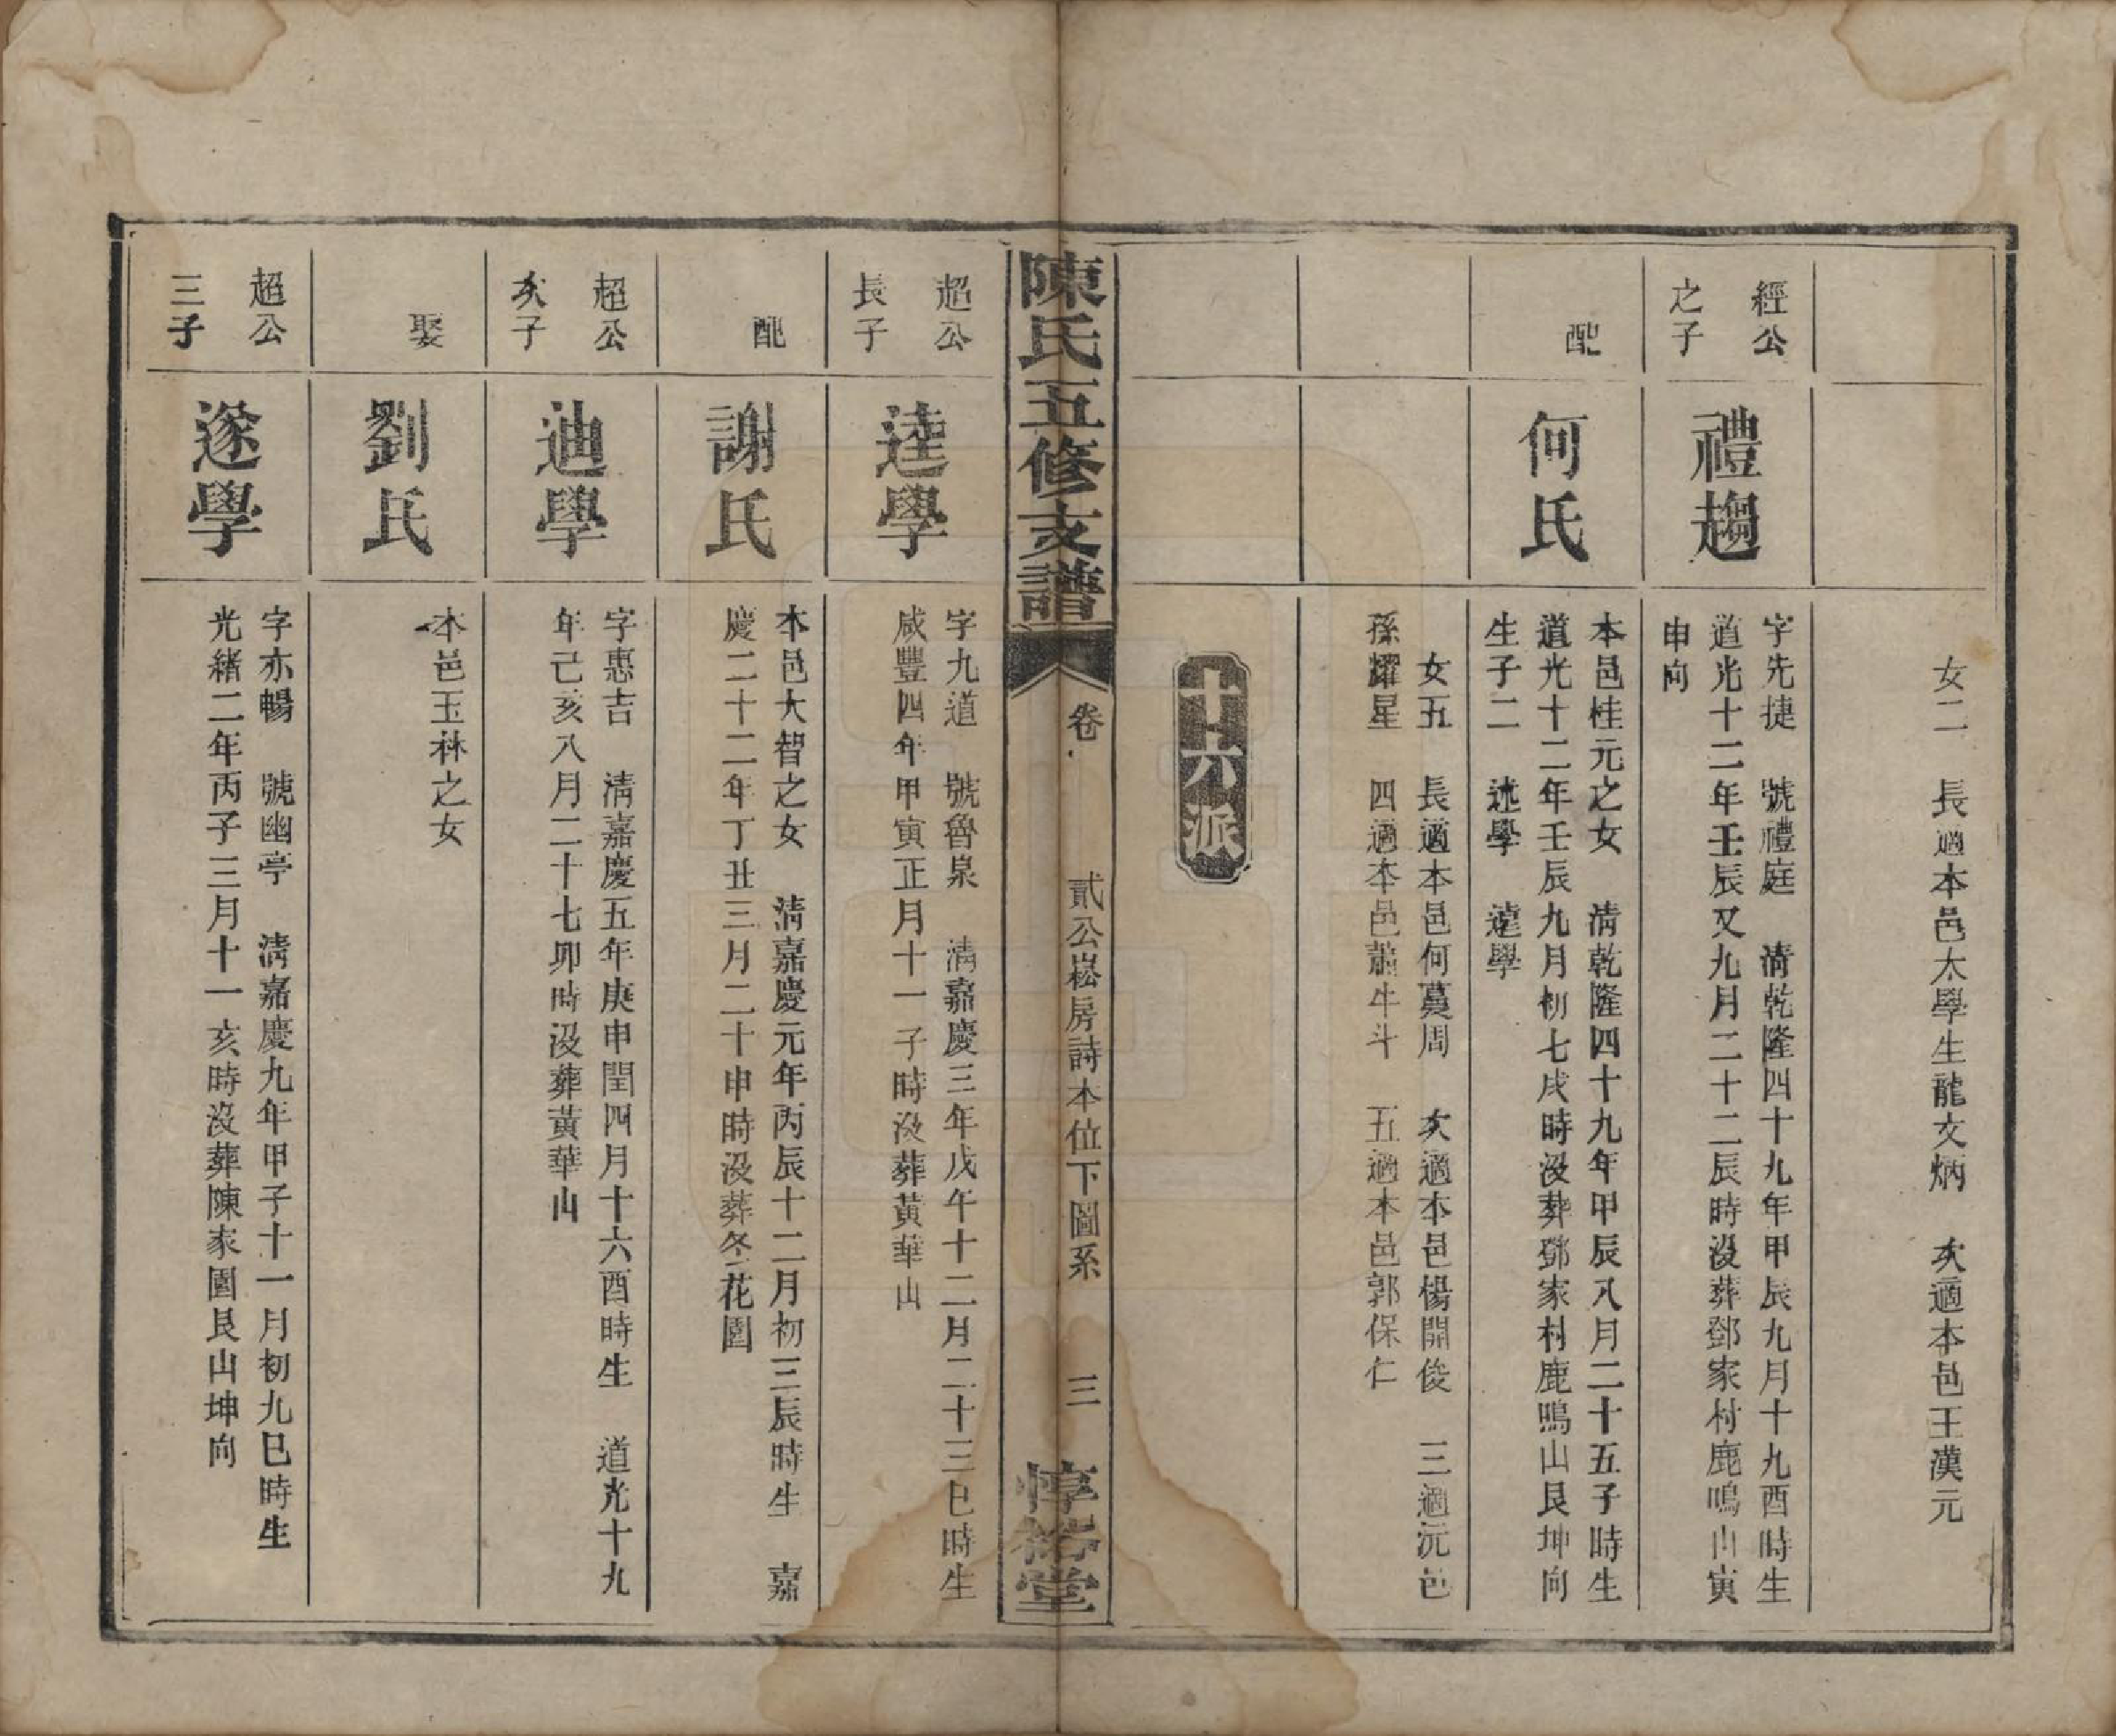 女二　長適本邑太學生龍文炳　次適本邑王漢元
經公
之子
禮趨
字先捷　號禮庭　清乾隆四十九年甲辰九月十九酉時生
道光十二年壬辰又九月二十二辰時沒葬鄧家村鹿鳴山寅
申向
配
何氏
本邑桂元之女　清乾隆四十九年甲辰八月二十五子時生
道光十二年壬辰九月初七戌時沒葬鄧家村鹿鳴山艮坤向
生子二　述學　達學
女五　長適本邑何蓂周　次適本邑楊開俊　三適沅邑
孫耀星　四適本邑蕭牛斗　五適本邑郭保仁
十六派
陳氏五修支譜
卷
貳公崧房詩本位下圖系
三
惇裕堂
超公
長子
逵學
字九道　號魯泉　清嘉慶三年戊午十二月二十三巳時生
咸豐四年甲寅正月十一子時沒葬黃華山
配
謝氏
本邑大智之女　清嘉慶元年丙辰十二月初三辰時生　嘉
慶二十二年丁丑三月二十申時沒葬冬花園
超公
次子
迪學
字惠吉　清嘉慶五年庚申閏四月十六酉時生　道光十九
年己亥八月二十七卯時沒葬黃華山
娶
劉氏
本邑玉林之女
超公
三子
遂學
字亦暢　號幽亭　清嘉慶九年甲子十一月初九巳時生
光緒二年丙子三月十一亥時沒葬陳家園艮山坤向